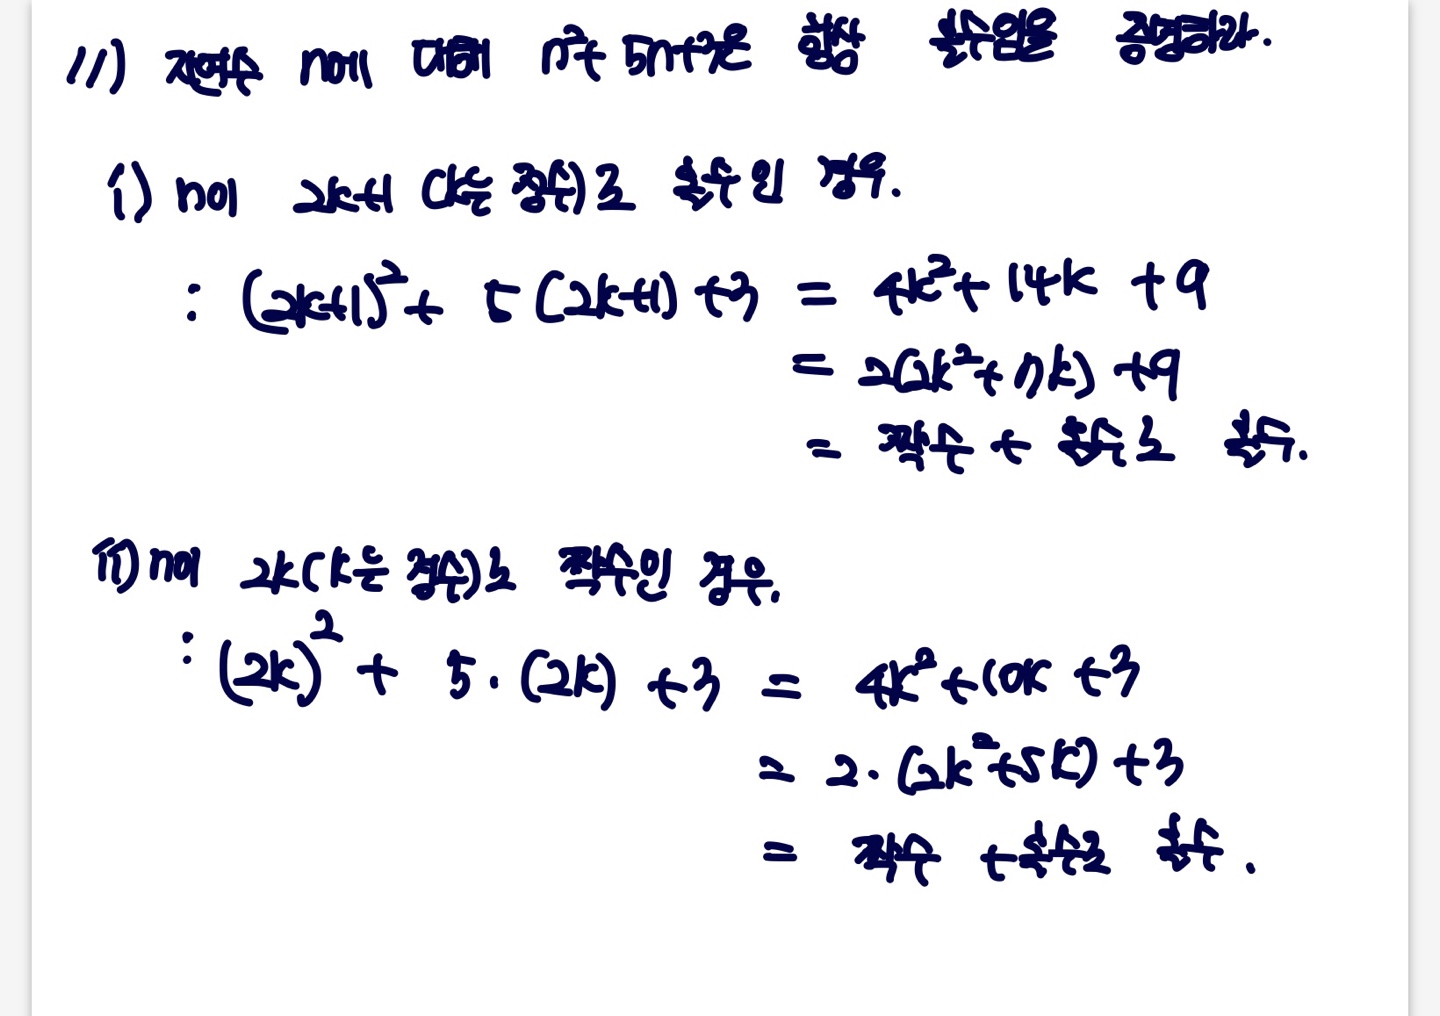 11) 자연수 n에 대해 n²+5n+3은 항상 홀수임을 증명하라.
i) n이 2k+1 (k는 정수)로 홀수인 경우.
: (2k+1)²+ 5(2k+1)+3 = 4k²+14k+9
= 2(2k²+7k)+9
= 짝수 + 홀수로 홀수.
ii) n이 2k(k는 정수)로 짝수인 경우.
: (2k)² + 5·(2k)+3 = 4k²+10k+3
= 2·(2k²+5k)+3
= 짝수 +홀수로 홀수.